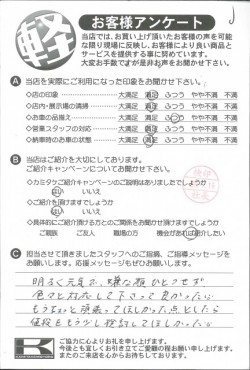 軽
お客様アンケート
当店では、お買い上げ頂いたお客様の声を可能
な限り現場に反映し、お客様により良い商品と
サービスを提供する事に努めています。
大変お手数ですが是非お声をお聞かせ下さい。
A 当店を実際にご利用になった印象をお聞かせ下さい。
◇店の印象 大満足 満足 ふつう やや不満 不満
◇店内・展示場の清掃 大満足 満足 ふつう やや不満 不満
◇お車の品揃え 大満足 満足 ふつう やや不満 不満
◇営業スタッフの対応 大満足 満足 ふつう やや不満 不満
◇納車時のお車の状態 大満足 満足 ふつう やや不満 不満
B 当店はご紹介を大切にしております。
ご紹介キャンペーンについてお聞かせ下さい。
◇カミタケご紹介キャンペーンのご説明はありましたでしょうか
はい いいえ
◇ご紹介を頂けますでしょうか
はい いいえ
◇具体的にご紹介頂ける方とのご関係をお聞かせ頂けますでしょうか
ご親族 ご友人 職場の方 機会があれば紹介したい
C 担当させて頂きましたスタッフへのご指摘、ご指導メッセージを
お願いします。応援メッセージもぜひお願いします。
明るく元気で、嫌な顔ひとつせず
色々と対応して下さって良かったです。
もうちょっと頑張ってほしかった点としたら
値段をもう少し検討してほしかった
ご協力に心よりお礼を申し上げます。
今後とも宜しくお引き立てご愛顧の程お願い申し上げます。
またのご来店を心からお待ちしております。